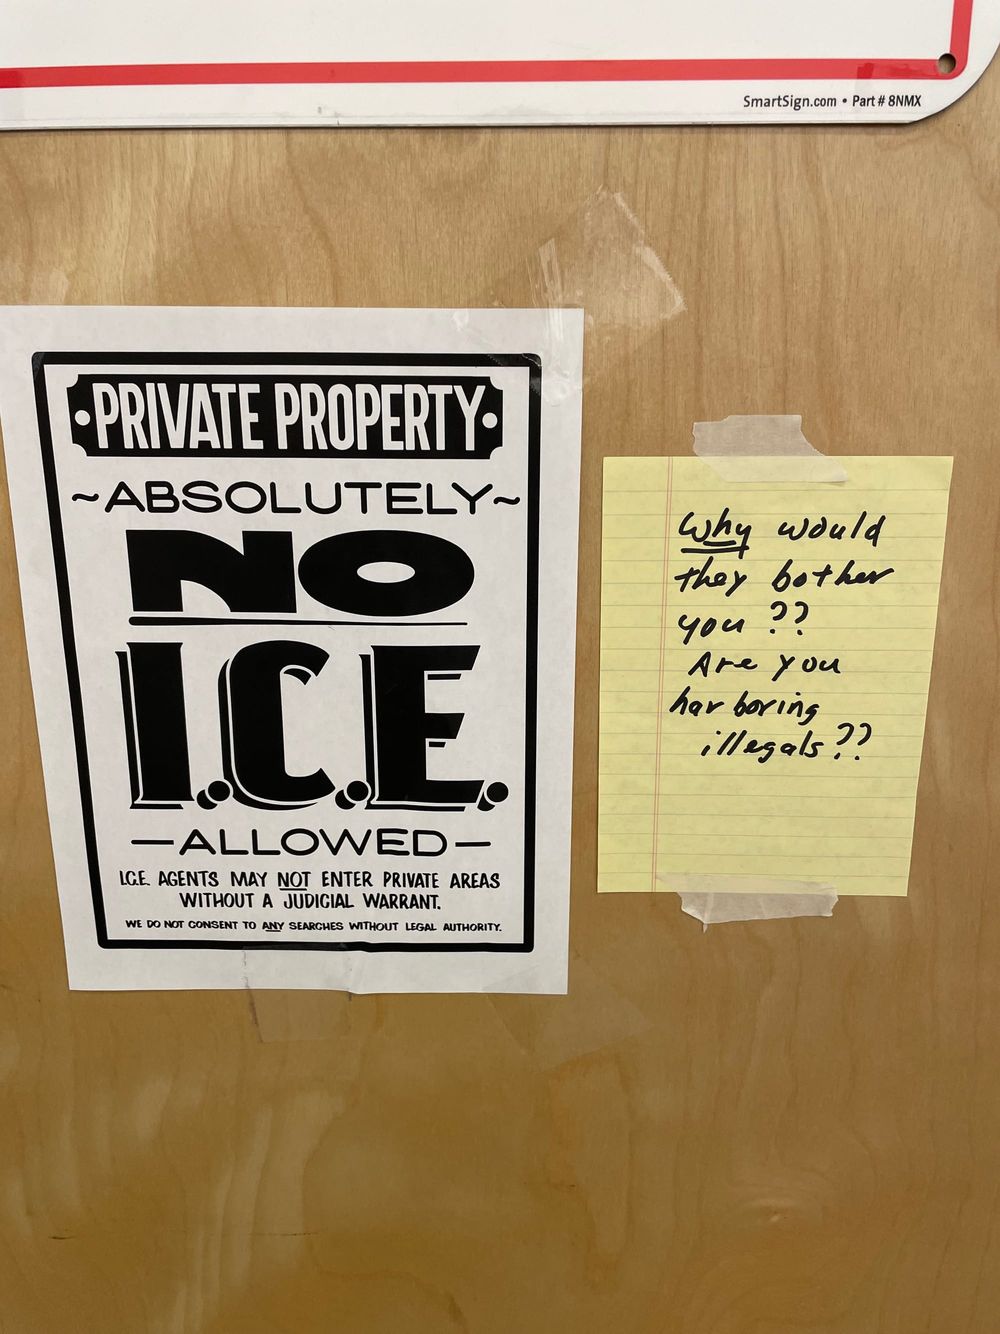 SmartSign.com • Part # 8NMX
•PRIVATE PROPERTY•
~ABSOLUTELY~
NO
I.C.E.
—ALLOWED—
I.C.E. AGENTS MAY NOT ENTER PRIVATE AREAS
WITHOUT A JUDICIAL WARRANT.
WE DO NOT CONSENT TO ANY SEARCHES WITHOUT LEGAL AUTHORITY.
Why would
they bother
you ??
Are you
harboring
illegals??